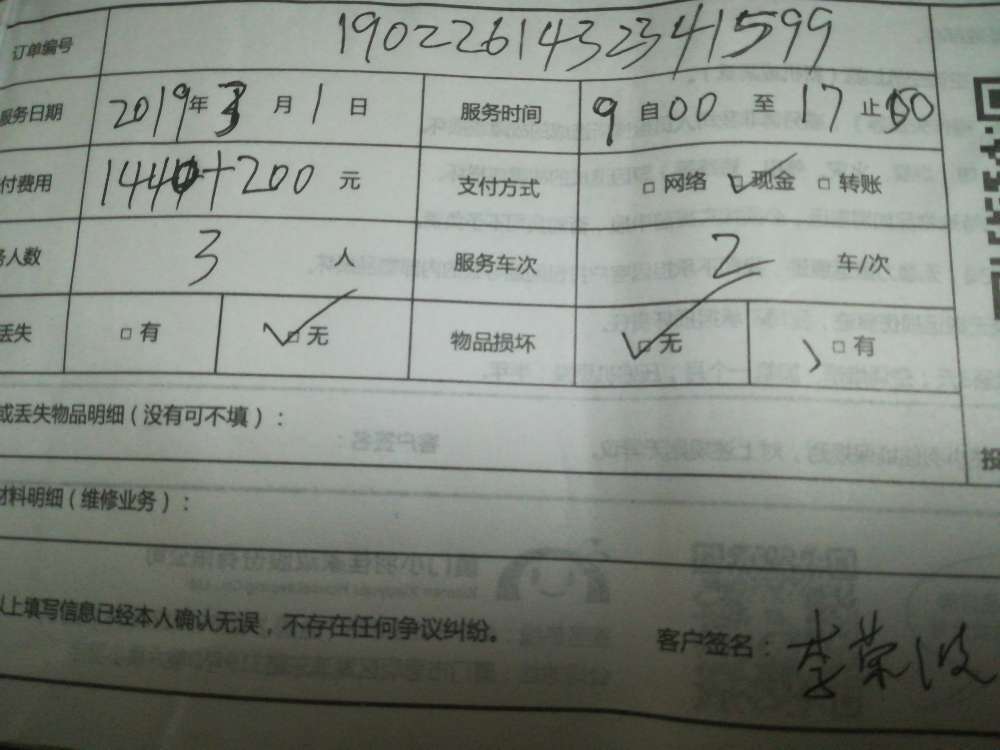 订单编号 190226143234 1599
服务日期 2019年3月1日 服务时间 9自00至17止50
付费用 1440+200元 支付方式 □网络 ☑现金 □转账
务人数 3人 服务车次 2车/次
丢失 □有 ☑无 物品损坏 ☑无 □有
或丢失物品明细(没有可不填):
投
材料明细(维修业务):
以上填写信息已经本人确认无误,不存在任何争议纠纷。 客户签名:李荣波